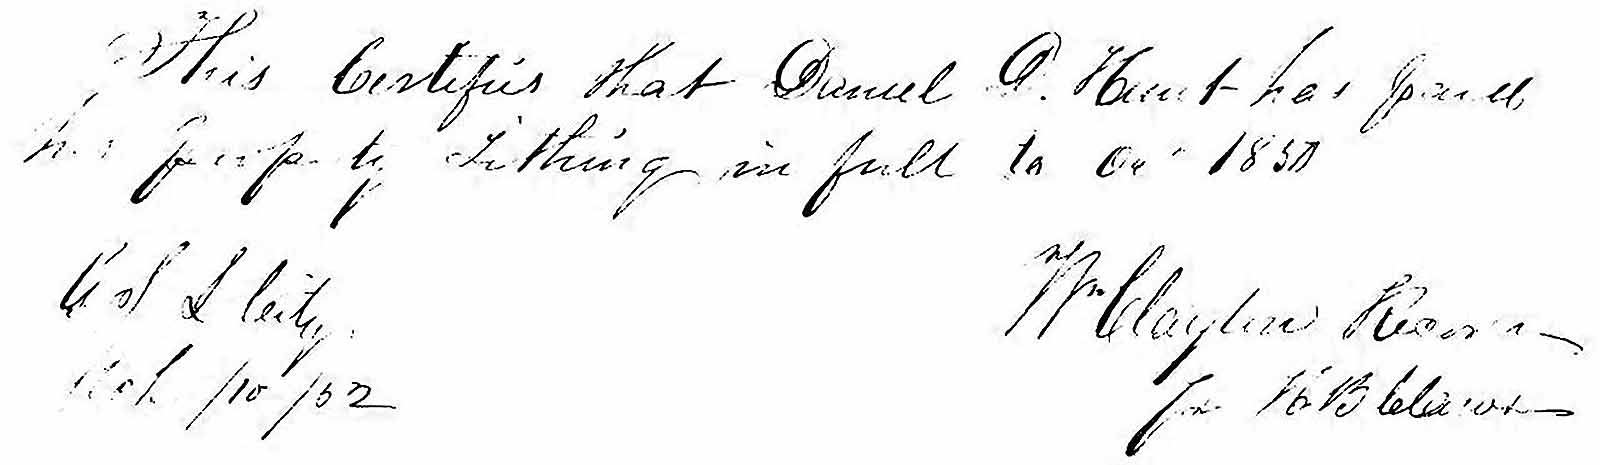 This Certifies that Daniel D. Hunt has paid
his property tithing in full to Oct 1850
G S L City
/10 /52
Wm Clayton Recor
for H B Clawson